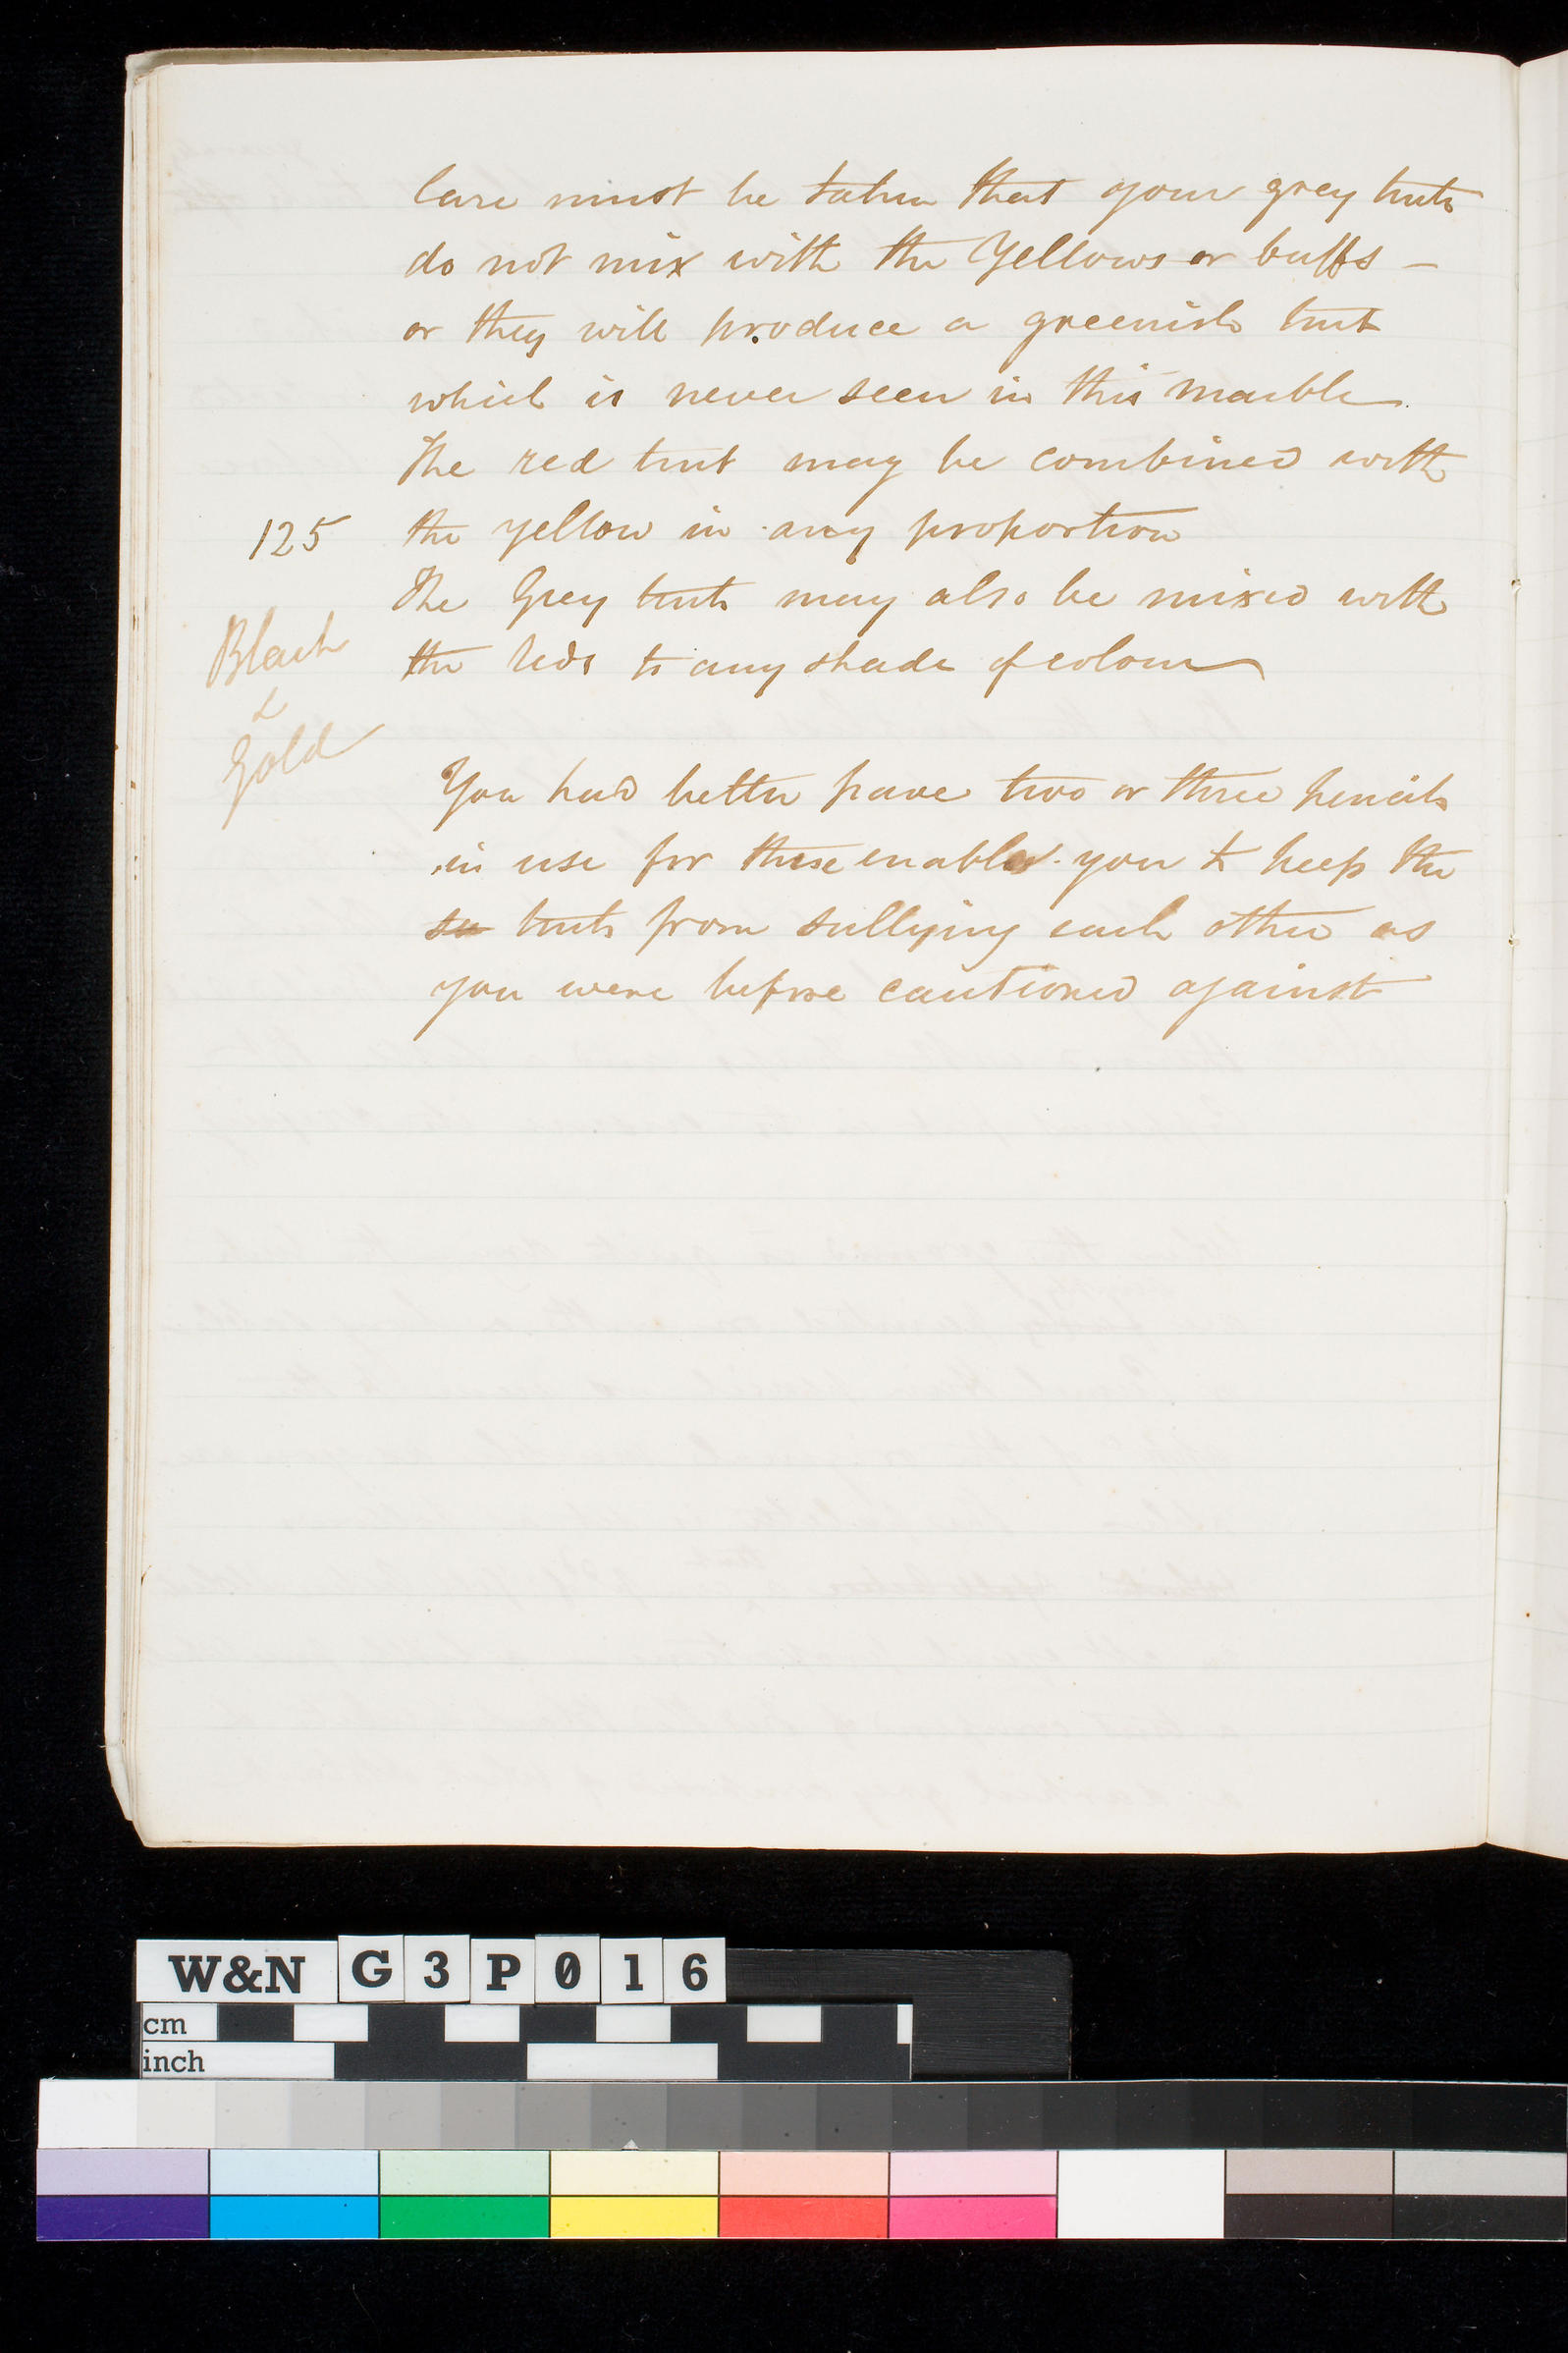 Care must be taken that your grey tints
do not mix with the Yellows or buffs -
or they will produce a greenish tint
which is never seen in this marble.
The red tint may be combined with
125
the yellow in any proportion
The Grey tints may also be mixed with
the reds to any shade of colour
Black
&
Gold
You had better have two or three pencils
in use for these enables you to keep the
tints from sullying each other as
you were before cautioned against
W&N G3P016
cm
inch